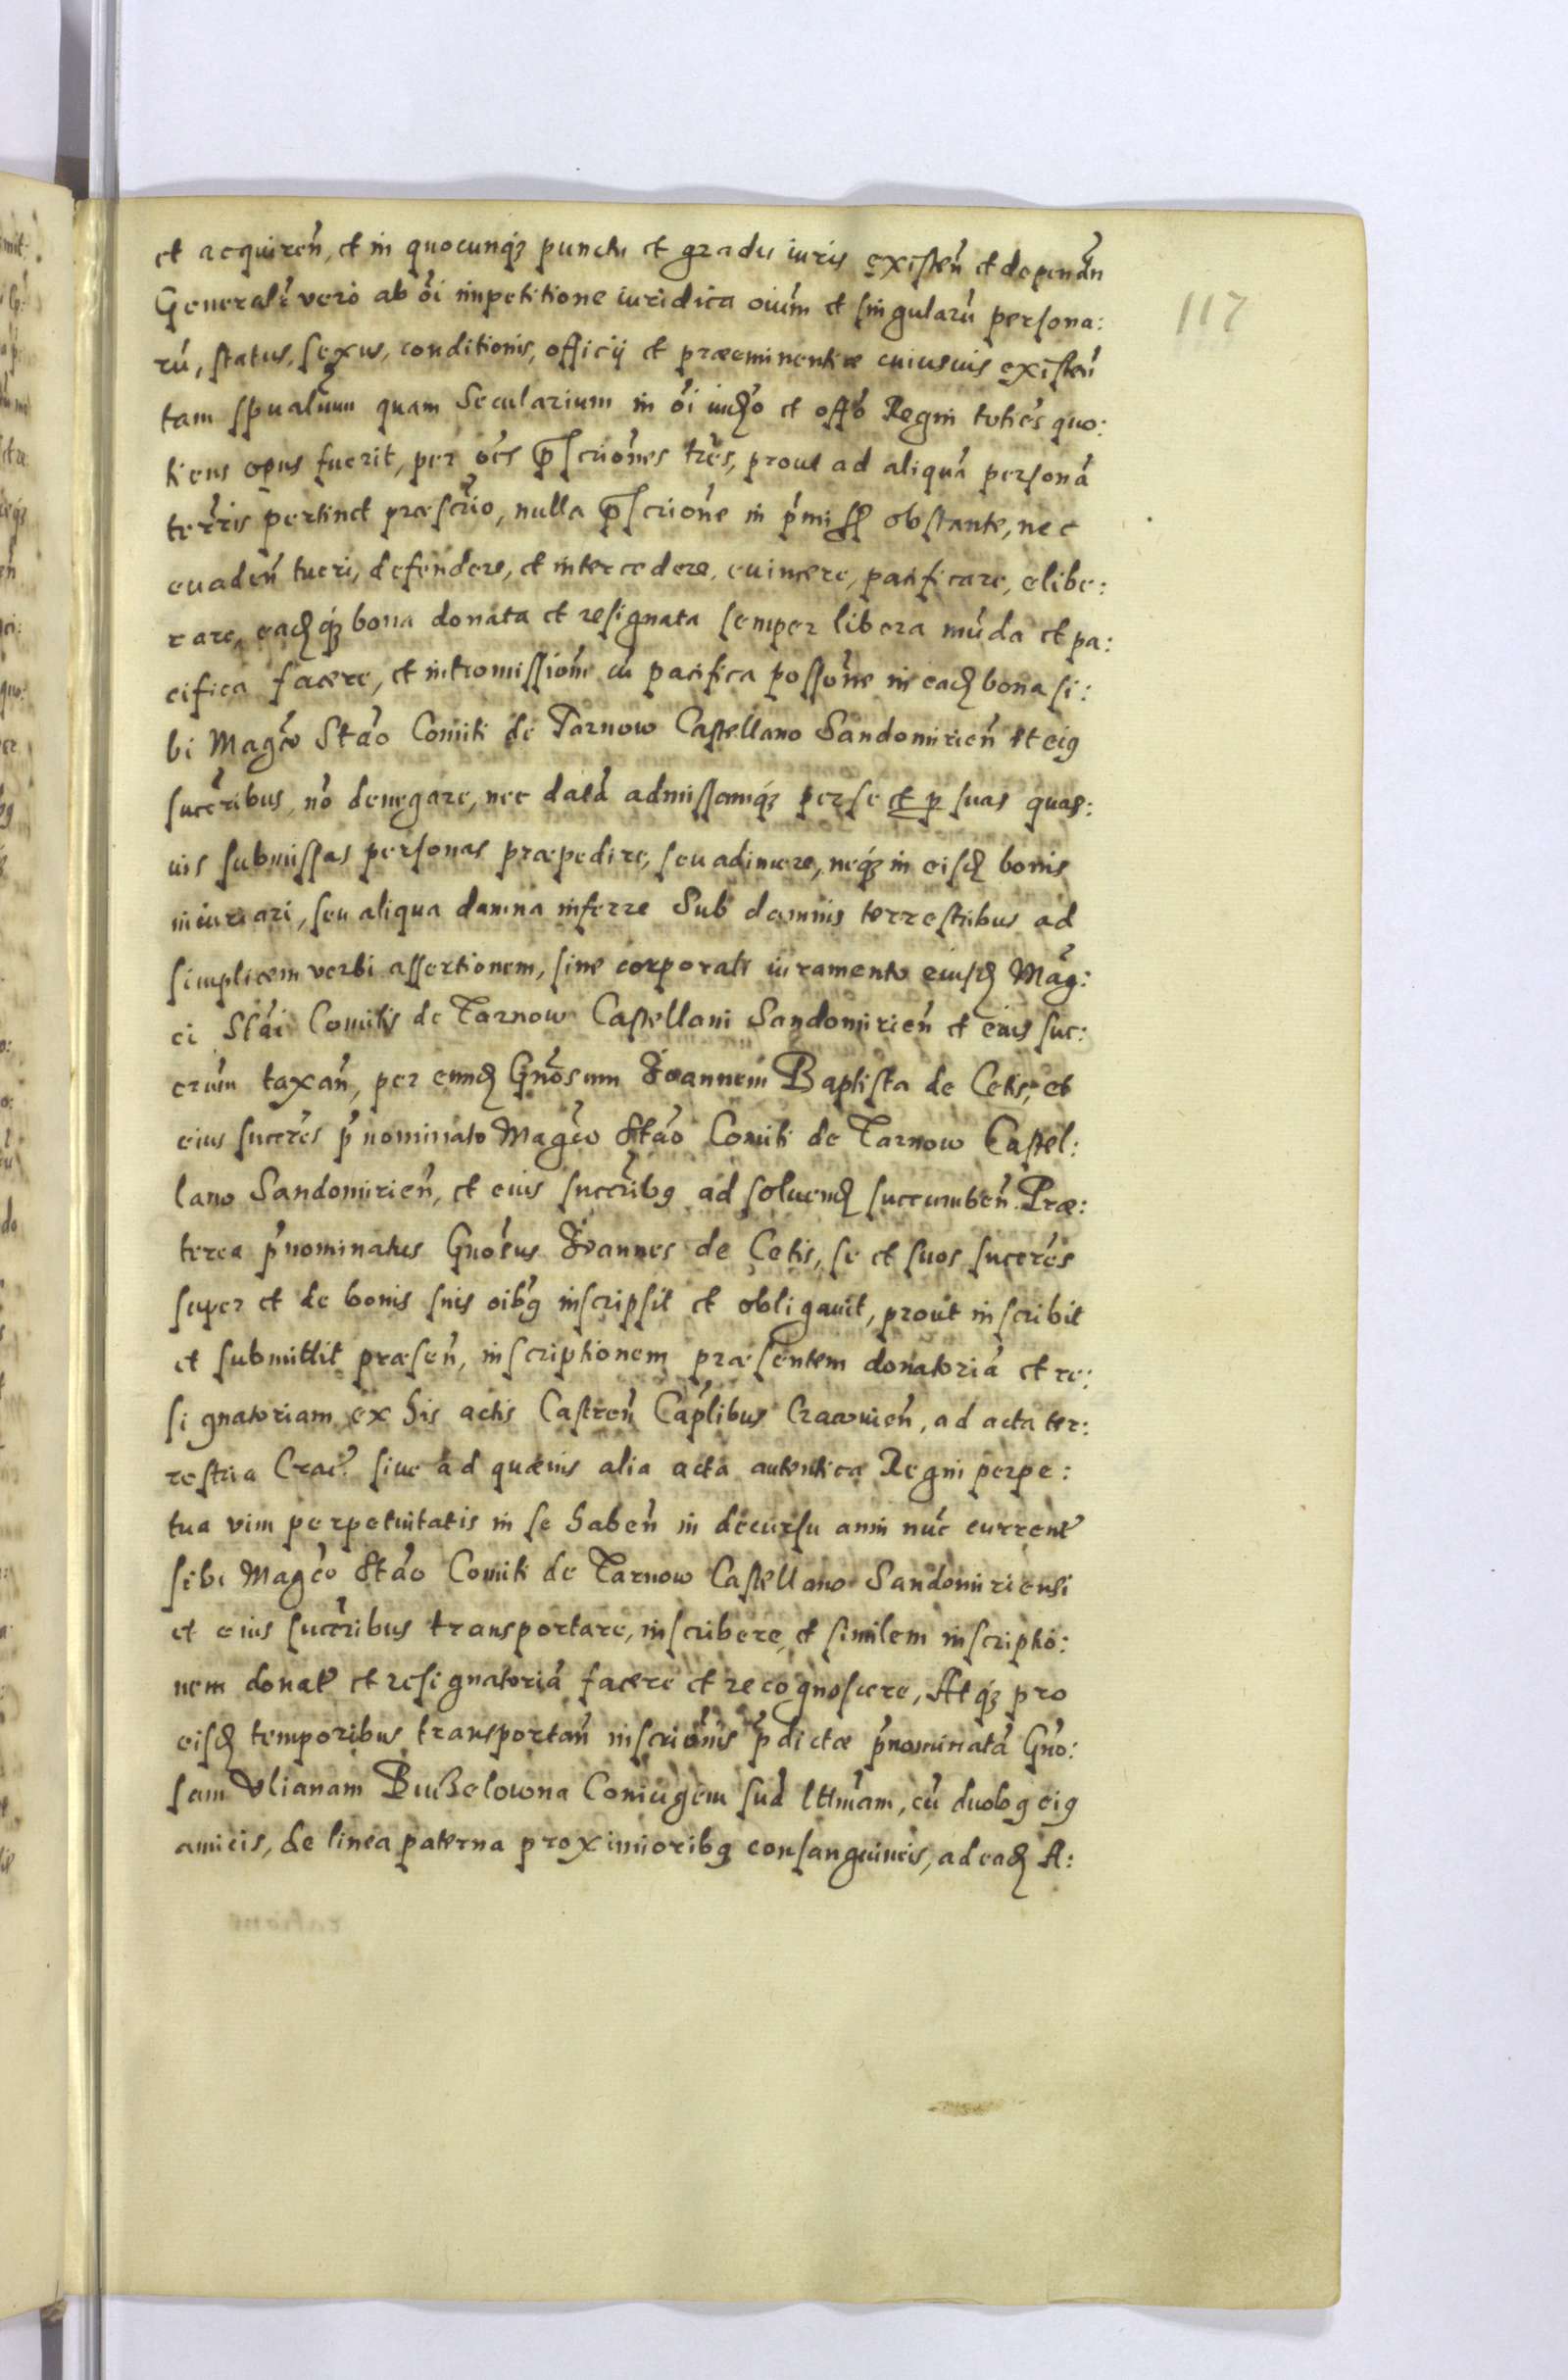 et acquireñ, et in quocunq́ꝫ punctu et gradu iuris existeñ et dependeñ
Generalr̃ vero ab õi impetitione iuridica oiũm et singularũ persona:
rũ, status, sexus, conditionis, officij et præeminentiæ cuiusuis existeñ
tam spualium quam Secularium in õi iudõ et offõ Regni toties quo:
tiens opus fuerit, per oẽs p̃scriões trẽs, prout ad aliquã personã
terris pertinet præscrio, nulla p̃scriõne in p̃miss obstante, nec
euadeñ tueri, defendere, et intercedere, euincere, pacificare, elibe:
rare, eadq́ꝫ bona donata et resignata semper libera mũda et pa:
cifica facere, et intromissionẽ cũ pacifica possõne in ead bona si:
bi Magcõ Stão Comiti de Tarnow Castellano Sandomirieñ et eiꝰ
succr̃ibus, nõ denegare, nec datã admissamq́ꝫ per se et ꝑ suas quas:
uis submissas personas præpedire, seu adimere, neq́ꝫ in eisd bonis
iniuriari, seu aliqua damna inferre Sub damnis terrestribus ad
simplicem verbi assertionem, sine corporali iuramento eiusd Mag:
ci Stãi Comitis de Tarnow Castellani Sandomirieñ et eius suc:
crũm taxañ, per eund Gnõsum Joannem Baptista de Cetis, et
eius succrẽs p̃nominato Magcõ Stão Comiti de Tarnow Castel:
lano Sandomirieñ, et eius succr̃ibꝰ ad soluend succumbeñ. Præ:
terea p̃nominatus Gnõsus Joannes de Cetis, se et suos succrẽs
super et de bonis suis oibꝰ inscripsit et obligauit, prout inscribit
et submittit præseñ, inscriptionem præsentem donatoriã et re:
signatoriam ex his actis Castreñ Cap̃libus Cracouieñ, ad acta ter:
restria Crac̃. siue ad quæuis alia acta autentica Regni perpe:
tua vim perpetuitatis in se habeñ in decursu anni nũc current̃
sibi Magcõ Stão Comiti de Tarnow Castellano Sandomiriensi
et eius succr̃ibus transportare, inscribere, et similem inscriptio:
nem donat̃ et resignatoriã facere et recognoscere, Atq́ꝫ pro
eisd temporibus transportañ inscriõnis p̃dictæ p̃nominatã Gnõ:
sam Vlianam Bużelowna Coniugem suã lttm̃am, cũ duobꝰ eiꝰ
amicis, de linea paterna proximioribꝰ consanguineis, ad ead A:
117